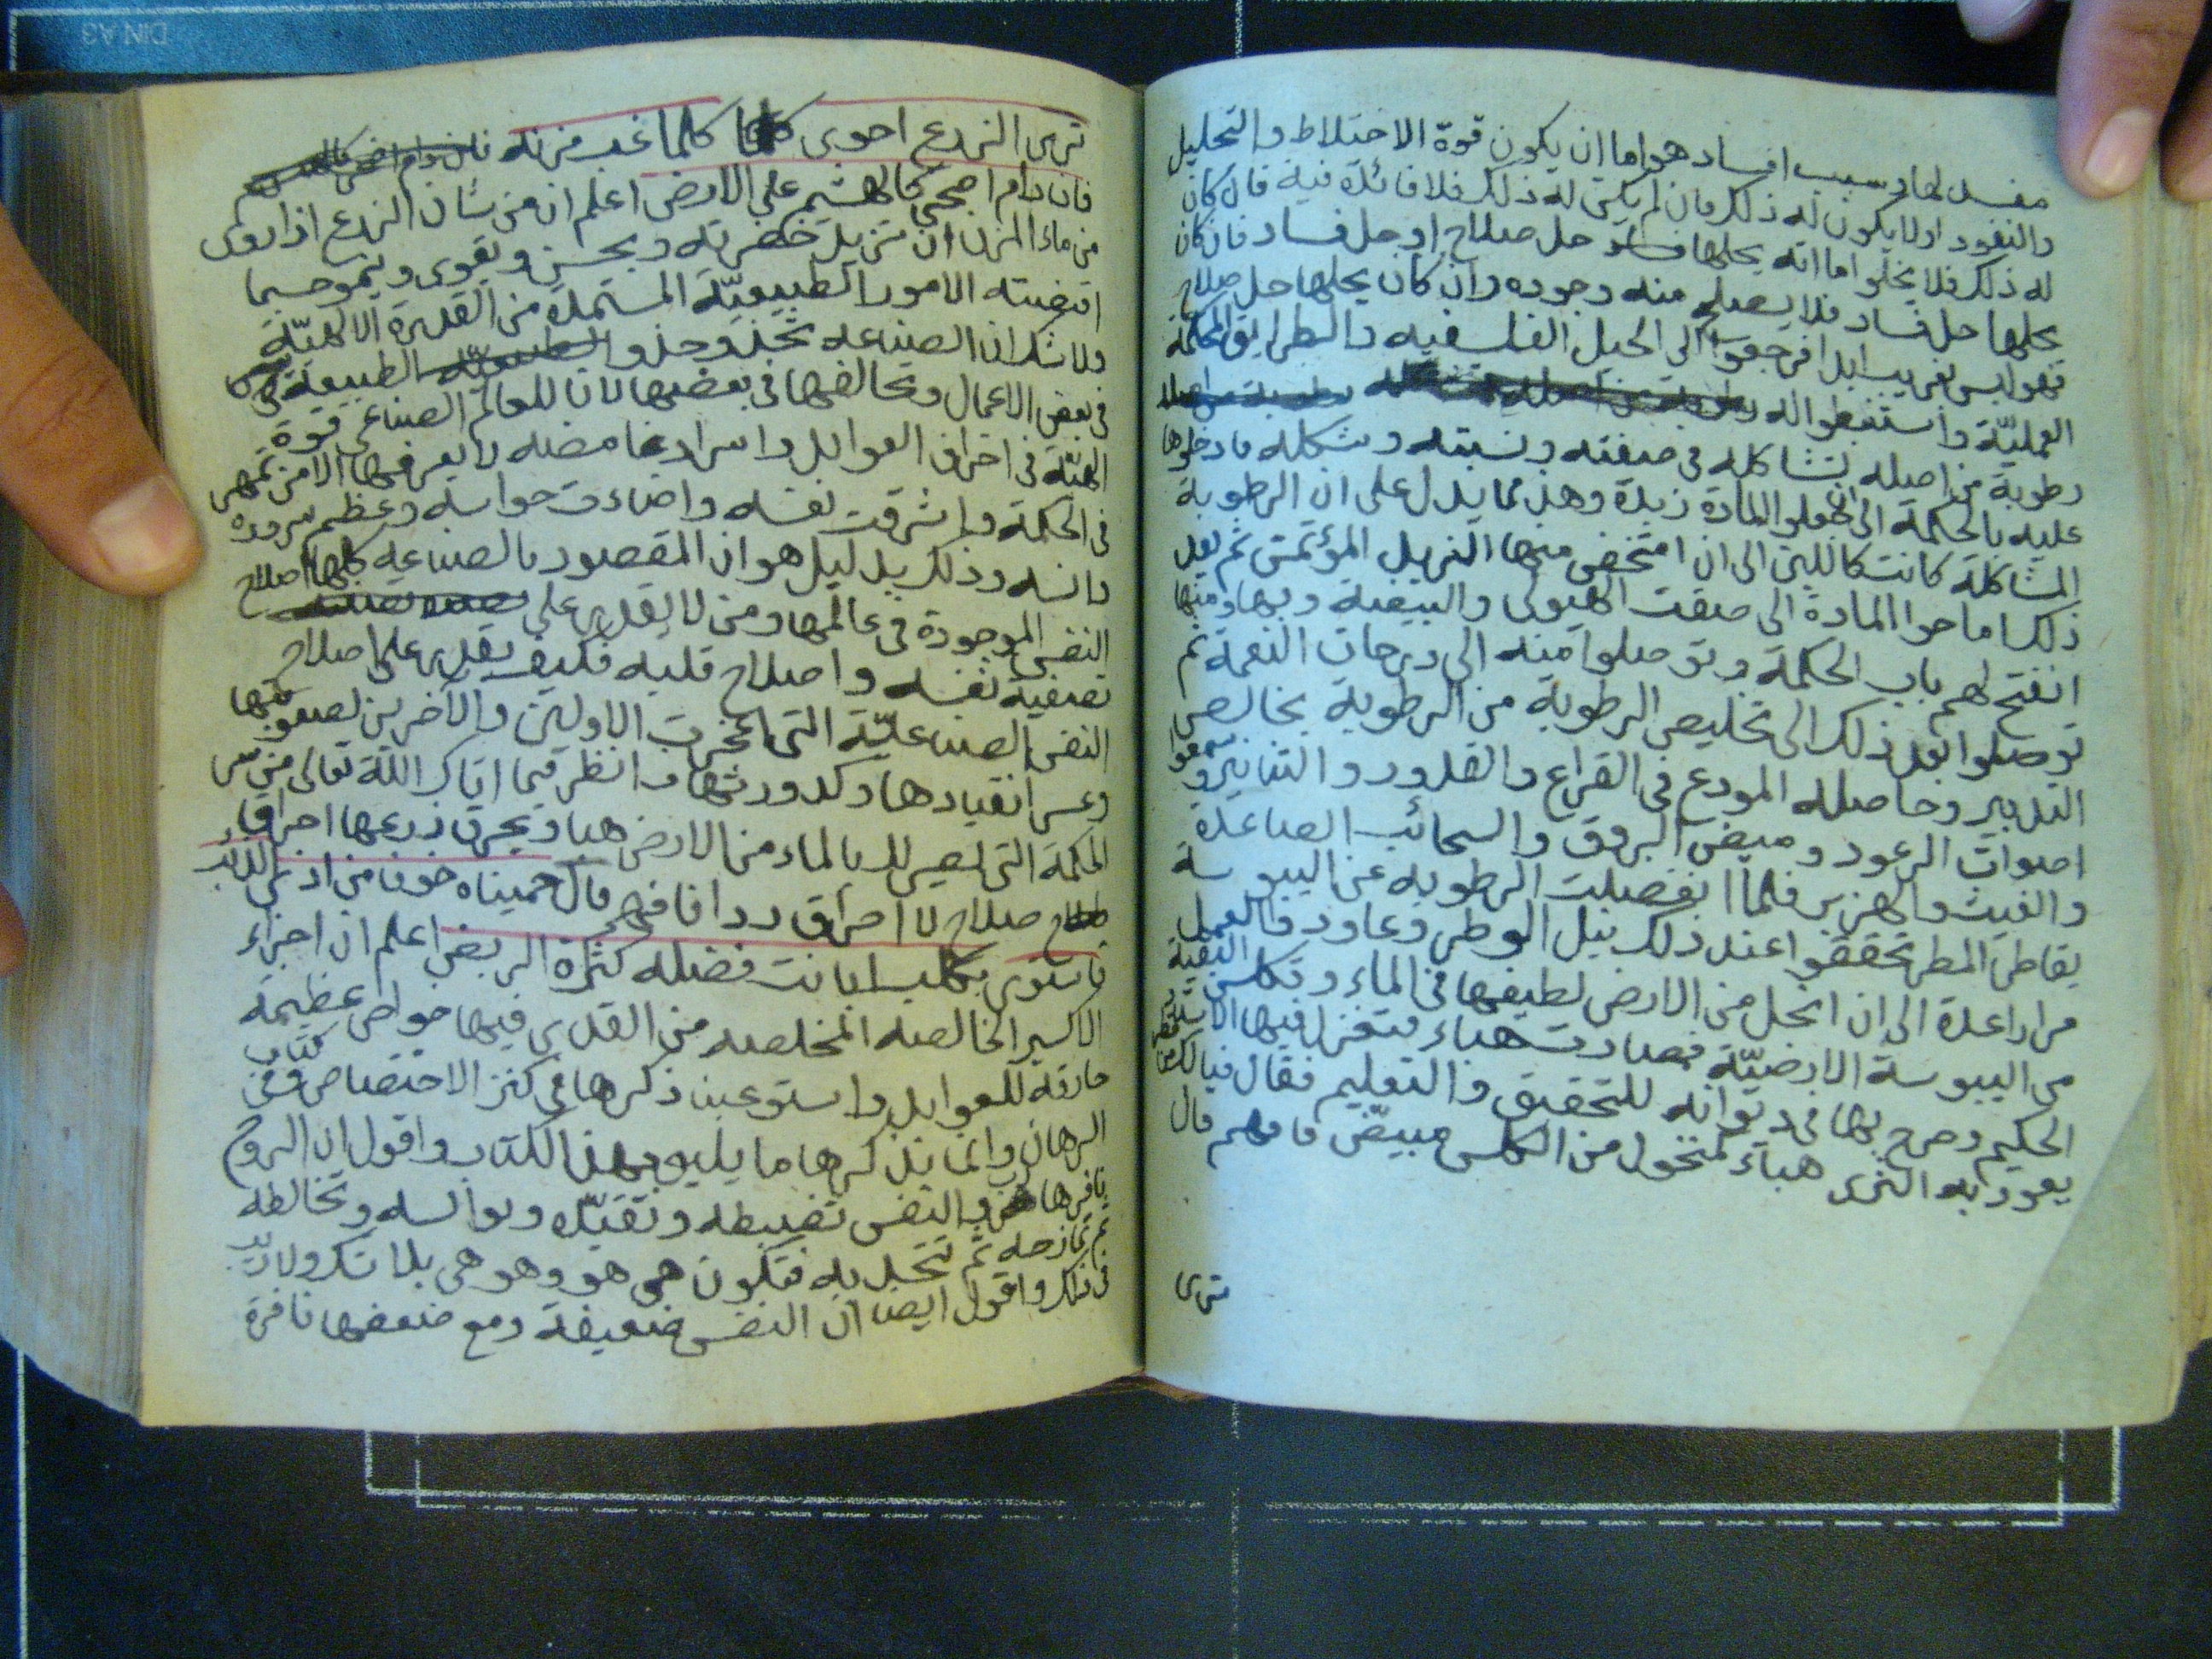 مفسد لها وسبب افساد هو اما ان يكون قوة الاختلاط والتحليل
والنفوذ او لا يكون له ذلك فان لم يكن له ذلك فلا فائدة فيه فان كان
له ذلك فلا يخلوا اما انه يحلها حل صلاح او حل فساد فان كان
يحلها حل فساد فلا يصلح منه وجوده وان كان يحلها حل صلاح
فهو ليس بغريب ابدا فرجعوا الى الحيل الفلسفيه والطرايق الحكمة
العمليّة واستنبطوا له
رطوبة من اصله تشاكله في صفته ونسبته وشكله فادخلوها
عليه بالحكمة الى ان جعلوا المادة زبدة وهذ مما يدل على ان الرطوبة
المشاكلة كانت كاللبن الى ان امتخض منها الزبد ثم بعد
ذلك اماحوا المادة الى صفت الهيولى والبيضة وبها ومنها
انفتح لهم باب الحكمة وتوصلوا منه الى درجات النعمة ثم
توصلوا بعد ذلك الى تخليص الرطوبة من الرطوبة بخالص
التدبير وحاصله المودع في القراع والقدور والتنانير وسمعوا
اصوات الرعود وميض البروق والسحائب الصاعدة
والغيث والهزبر فلما انفصلت الرطوبه عن اليبوسة
بقاطر المطر تحققوا عند ذلك بنيل الوطر وعاودوا العمل
مرارا عدة الى ان انحل من الارض لطيفها في الماء وتكلس البقية
من اليبوسة الارضيّة فصارت هباء فتغزل فيها الاستاذ
الحكيم وصرح بها في ديوانه للتحقيق والتعليم فقال فيا لك من
يعود به الثرى هباء لمنخول من الكلس مبيضّ فافهم قال
ترى
ترى الزرع احوى كلما غب مزنه
فان دام اضحى كالهشيم على الارض اعلم ان من شان الزرع اذا روى
من ماء المزن ان تزيد خضرته ويحسن ويقوى وينمو حسبما
اقتضته الامور الطبيعيّة المستمدة من القدرة الالهيّة
ولا شك ان الصناعه تحذو حذو الطبيعة
في بعض الاعمال وتخالفها في بعضها لان للعالم الصناعي قوة
الهيّة في اختراق العوايد واسرار غامضه لا يعرفها الا من تمهر
في الحكمة واشرقت نفسه واضاءت حواسه وعظم سروره
وانسه وذلك بدليل هو ان المقصود بالصناعه كلها اصلاح
النفس الموجودة في عالمها ومن لا يقدر على
تصفية نفسه واصلاح قلبه فكيف يقدر على اصلاح
النفس الصناعيّة التي اعجزت الاولين والآخرين لصعوبتها
وعسر انقيادها وكدورتها وانظر فيما اتاك الله تعالى من سر
الحكمة التي لصير لك بالماء من الارض هبا ويحرق زرعها احراق
صلاح لا احراق ردا فافهم قال حميناه خوفا من اذى
فانتوى بكلب ابانت فضله كثرة الربض اعلم ان اجزاء
الاكسير الخالصه المخلصه من القذى فيها خواص عظيمة
خارقه للعوايد واستوعبت ذكرها في كنز الاختصاص وفي كتاب
البرهان وانما نذكر هاهنا ما يليق بهذا الكتاب واقول ان الروح
والنفس تضبطه وتقيّده وتوانسه وتخالطه
ثم تمازجه ثم تتحد به فتكون هي هو وهو هي بلا شك ولا ريب
في ذلك واقول ايضا ان النفس ضعيفة ومع ضعفها نافرة